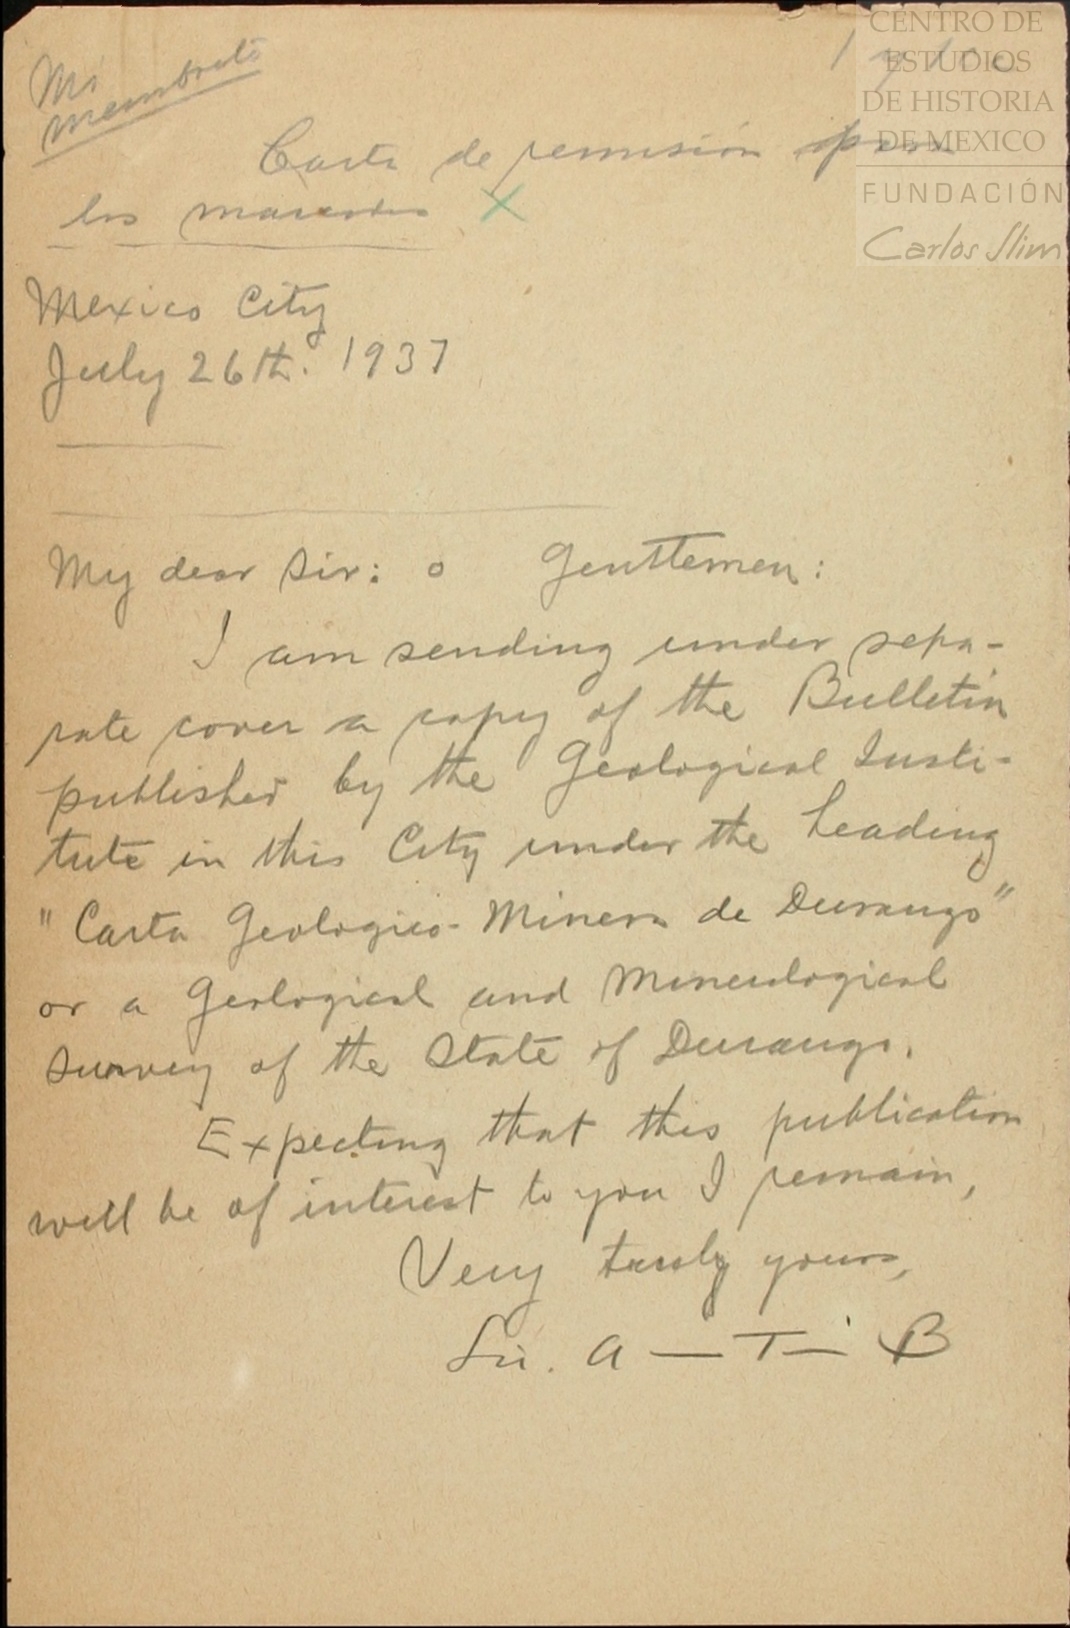 CENTRO DE
ESTUDIOS
DE HISTORIA
DE MEXICO
FUNDACIÓN
Carlos Slim
Mi
membrete
Carta de remisión para
los marcados X
Mexico City
July 26th. 1937
My dear Sir: o Gentlemen:
I am sending under sepa-
rate cover a copy of the Bulletin
published by the Geological Insti-
tute in this City under the heading
"Carta Geologico-Minera de Durango"
or a Geological and Mineralogical
Survey of the State of Durango.
Expecting that this publication
will be of interest to you I remain,
Very truly yours,
Lic. A — T — B